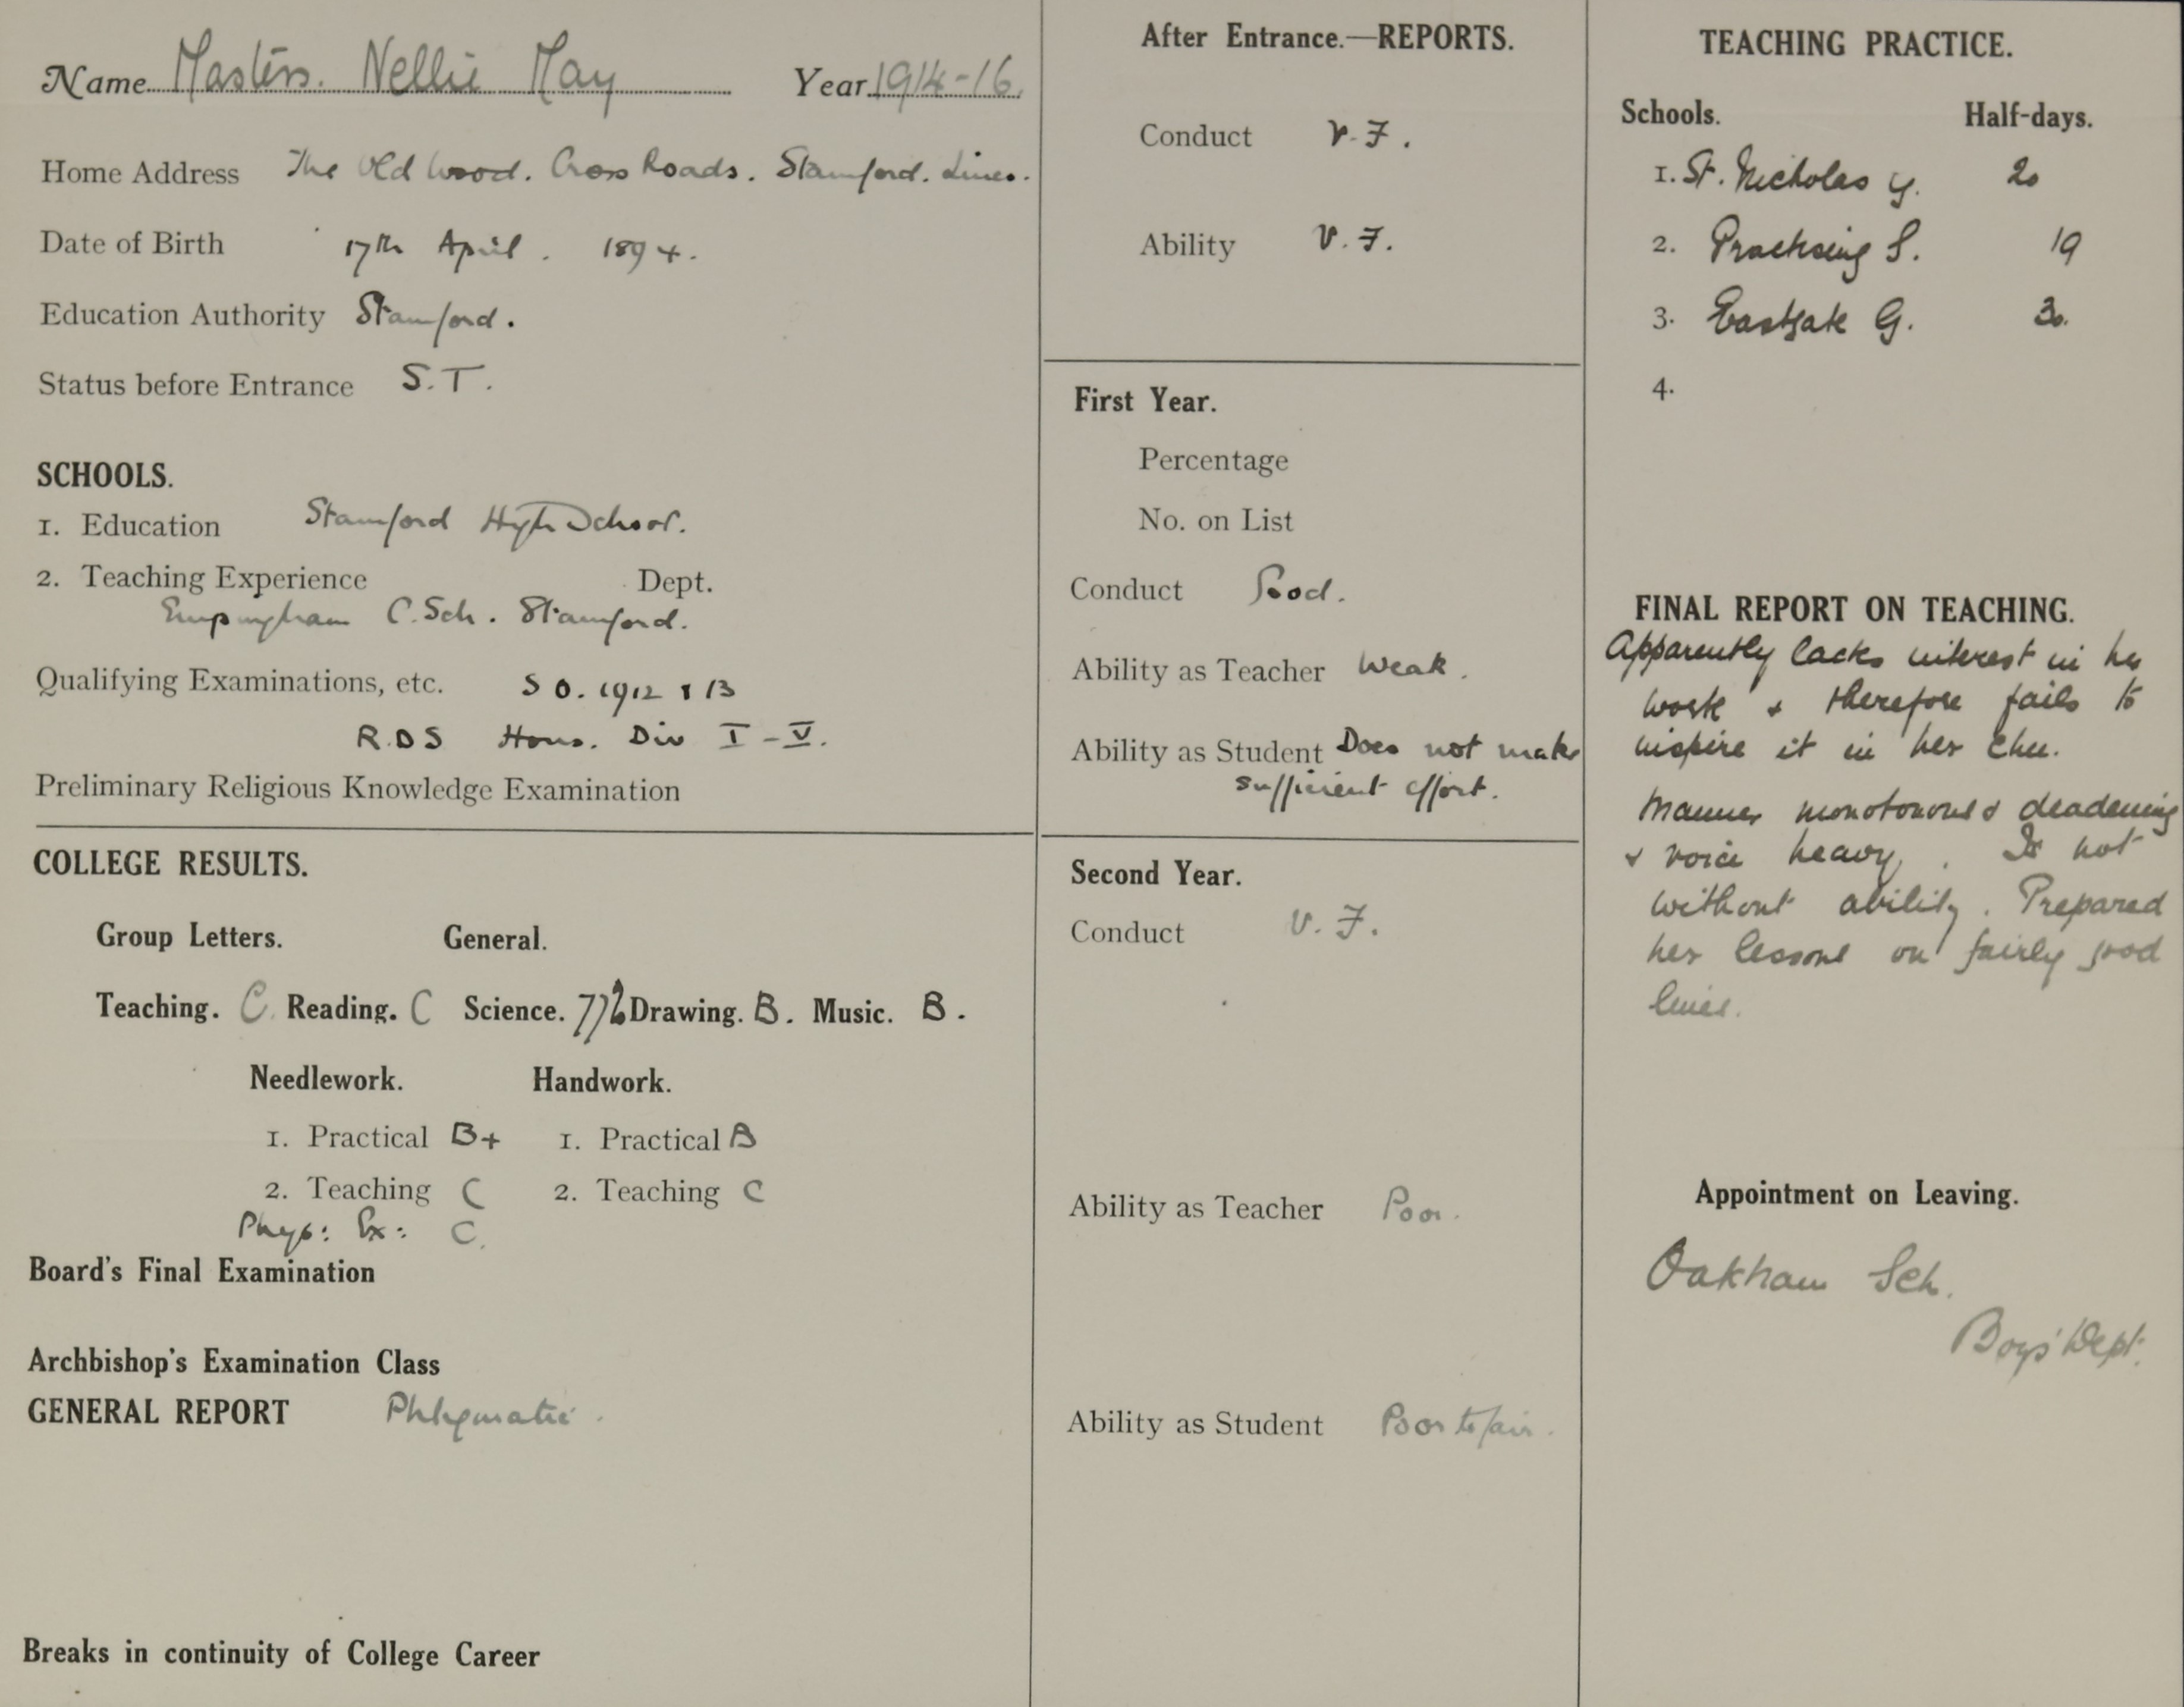 Name Masters. Nellie May Year 1914-16.
Home Address The Old Wood. Cross Roads. Stamford. Lincs.
Date of Birth 17th April. 1894.
Education Authority Stamford.
Status before Entrance S.T.
SCHOOLS.
1. Education Stamford High School.
2. Teaching Experience Dept.
Empingham C. Sch. Stamford.
Qualifying Examinations, etc. S O. 1912 & 13
R.D S Hons. Div I - V.
Preliminary Religious Knowledge Examination
COLLEGE RESULTS.
Group Letters. General.
Teaching. C. Reading. C Science. Drawing. B. Music. B.
Needlework. Handwork.
1. Practical B+ 1. Practical B
2. Teaching C 2. Teaching C
Phys: Ex: C.
Board's Final Examination
Archbishop's Examination Class
GENERAL REPORT Phlegmatic.
Breaks in continuity of College Career
After Entrance.—REPORTS.
Conduct V. F.
Ability V. F.
First Year.
Percentage
No. on List
Conduct Good.
Ability as Teacher Weak.
Ability as Student Does not make
sufficient effort.
Second Year.
Conduct V. F.
Ability as Teacher Poor.
Ability as Student Poor to fair.
TEACHING PRACTICE.
Schools. Half-days.
1. St. Nicholas G. 20
2. Practising S. 19
3. Eastgate G. 30.
4.
FINAL REPORT ON TEACHING.
Apparently lacks interest in her
work & therefore fails to
inspire it in her chn.
Manner monotonous & deadening
& voice heavy. Is not
without ability. Prepared
her lessons on fairly good
lines.
Appointment on Leaving.
Oakham Sch.
Boys' Dept.